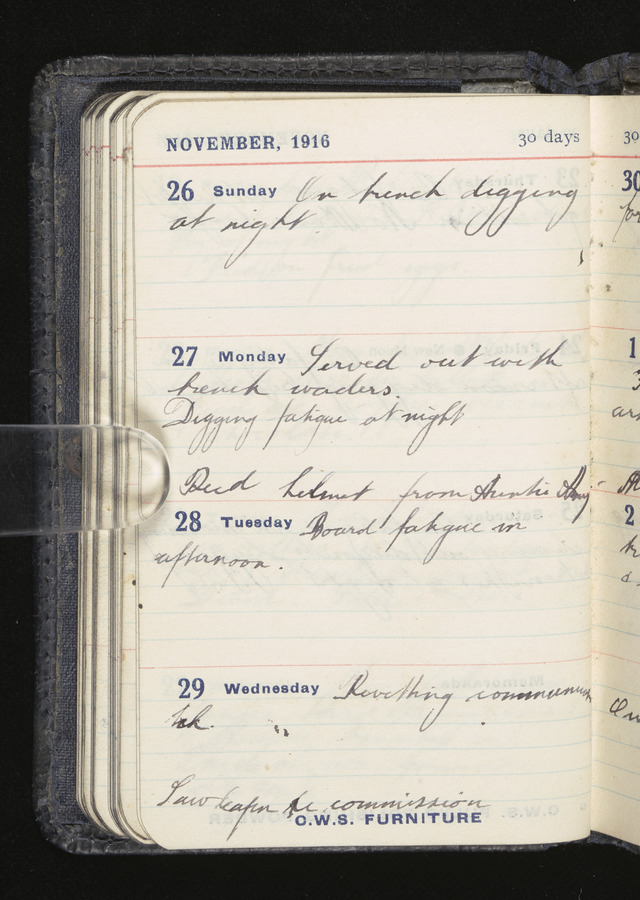 NOVEMBER, 1916 30 days
26 Sunday On trench digging
at night.
27 Monday Served out with
trench waders.
Digging fatigue at night
Recd helmet from Auntie
28 Tuesday Board fatigue in
afternoon.
29 Wednesday Revetting
Saw capn re commission
C.W.S. FURNITURE
30
30
1
2